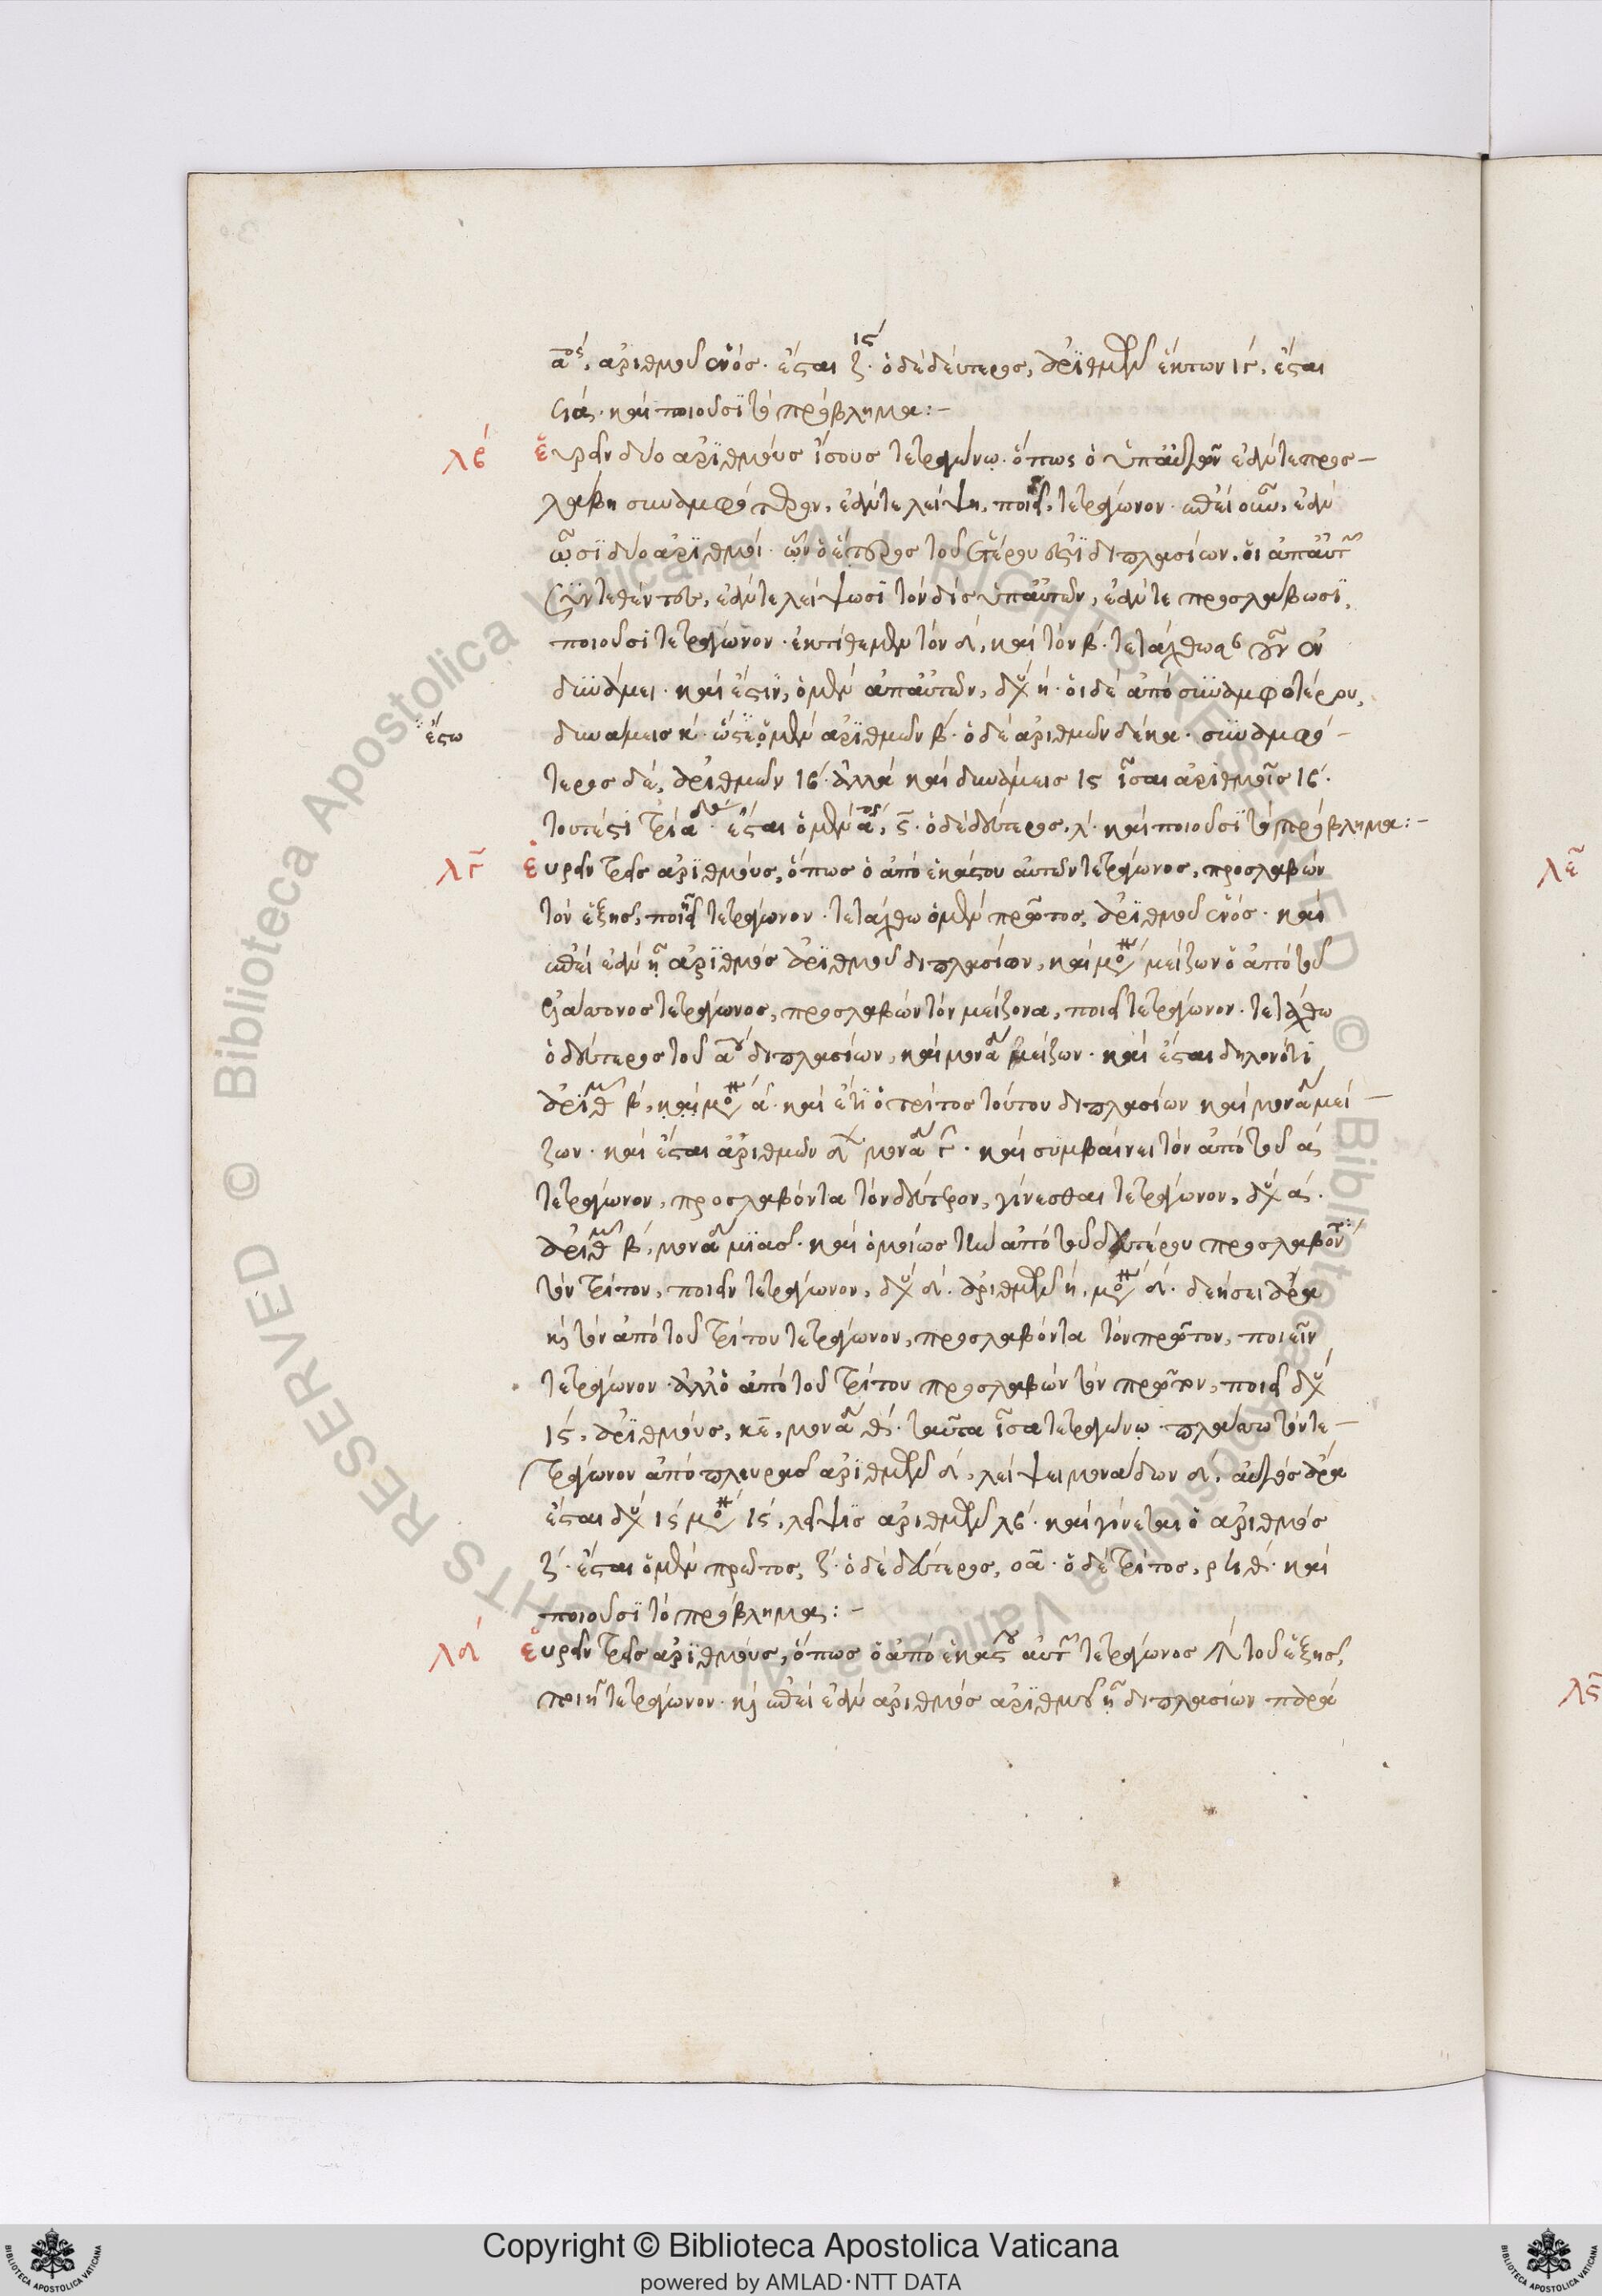 ιϛʹ
α^ος, ἀριθμοῦ ἑνός· ἔσται ζ̄· ὁ δὲ δεύτερος, ἀριθμῶν ἕκτων ιγ, ἔσται
καὶ ποιοῦσι τὸ πρόβλημα:-
λβʹ εὑρεῖν δύο ἀριθμοὺς ἴσους τετραγώνῳ· ὅπως ὁ ὑπ' αὐτῶν ἐάν τε προσ-
λάβη συναμφότερον, ἐάν τε λείψη, ποιεῖ, τετράγωνον· καὶ ἐπεὶ ἐὰν
ὦσι δύο ἀριθμοί· ὧν ὁ ἕτερος τοῦ ἑτέρου ἐστὶ διπλασίων, οἱ ἀπ' αὐτῶν
συντεθέντες, ἐάν τε λείψωσι τὸν δὶς ὑπ' αὐτῶν, ἐάν τε προσλάβωσι,
ποιοῦσι τετράγωνον· ἐκτίθεμεν τὸν δ, καὶ τὸν β· τετάχθωσαν οὖν ἐν
δυνάμει· καὶ ἔστιν, ὁ μὲν ἀπ' αὐτῶν, δυ η· οἱ δὲ ἀπὸ συναμφοτέρου,
ἔστω
δυνάμεις κ· ὥστε ὁ μὲν ἀριθμῶν β· ὁ δὲ ἀριθμῶν δέκα· συναμφό-
τερος δὲ, ἀριθμῶν ιβ· ἀλλὰ καὶ δυνάμεις ιϛ ἴσαι ἀριθμοῖς ιβ·
τουτέστι τρία δʹ· ἔσται ὁ μὲν α^ος, ϛ· ὁ δὲ δεύτερος, λ· καὶ ποιοῦσι τὸ πρόβλημα:-
λγ εὑρεῖν τρεῖς ἀριθμοὺς, ὅπως ὁ ἀπὸ ἑκάστου αὐτῶν τετράγωνος, προσλαβὼν
τὸν ἑξῆς, ποιεῖ τετράγωνον· τετάχθω ὁ μὲν πρῶτος, ἀριθμοῦ ἑνός· καὶ
ἐπεὶ ἐὰν ᾖ ἀριθμὸς ἀριθμοῦ διπλασίων, καὶ μο μείζων ὁ ἀπὸ τοῦ
ἐλάττονος τετράγωνος, προσλαβὼν τὸν μείζονα, ποιεῖ τετράγωνον· τετάχθω
ὁ δεύτερος τοῦ α^ου διπλασίων, καὶ μονάδι μείζων· καὶ ἔσται δηλονότι
ἀριθμ β, καὶ μο α· καὶ ἔτι ὁ τρίτος τούτου διπλασίων καὶ μονάδι μεί-
ζων· καὶ ἔσται ἀριθμῶν δ μονά γ· καὶ συμβαίνει τὸν ἀπὸ τοῦ α
τετράγωνον, προσλαβόντα τὸν δεύτερον, γίνεσθαι τετράγωνον, δυ α·
ἀριθμ β, μονά μιᾶς· καὶ ὁμοίως τὸν ἀπὸ τοῦ δευτέρου προσλαβόντ
τὸν τρίτον, ποιεῖν τετράγωνον, δυ δ· ἀριθμῶν η, μο δ· δεήσει ἄρα
καὶ τὸν ἀπὸ τοῦ τρίτου τετράγωνον, προσλαβόντα τὸν πρῶτον, ποιεῖν
τετράγωνον· ἀλλ' ὁ ἀπὸ τοῦ τρίτου προσλαβὼν τὸν πρῶτον, ποιεῖ δυ
ιϛ, ἀριθμοὺς, κε, μονά θ· ταῦτα ἴσα τετραγώνῳ· πλάττω τὸν τε-
τράγωνον ἀπὸ πλευρᾶς ἀριθμῶν δ, λείψει μονάδων δ, αὐτὸς ἄρα
ἔσται δυ ιϛ μο ιϛ, λεῖψις ἀριθμῶν λβ· καὶ γίνεται ὁ ἀριθμὸς
ζ· ἔσται ὁ μὲν πρῶτος, ζ· ὁ δὲ δεύτερος, οα· ὁ δὲ τρίτος, ρϟθ· καὶ
ποιοῦσι τὸ πρόβλημα:-
λδ εὑρεῖν τρεῖς ἀριθμοὺς, ὅπως ὁ ἀπὸ ἑκάστου αὐτῶν τετράγωνος ⋔ τοῦ ἑξῆς,
ποιῇ τετράγωνον· καὶ ἐπεὶ ἐὰν ἀριθμὸς ἀριθμοῦ ᾖ διπλασίων παρὰ
λε
λϛ
Copyright © Biblioteca Apostolica Vaticana
powered by AMLAD·NTT DATA